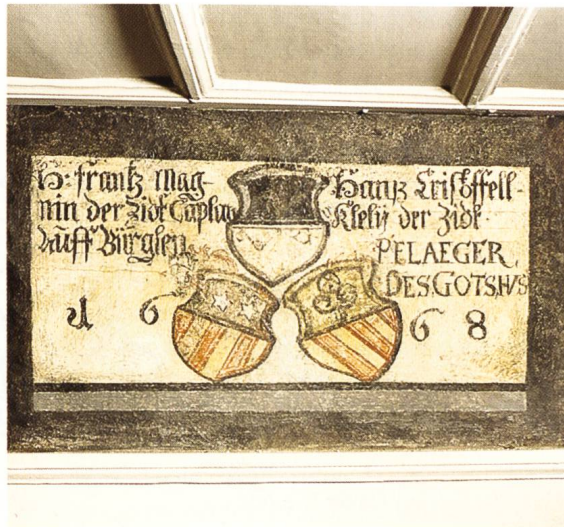 H: frantz Mag-
nin der Zidt Caplan
Auff Bürglen
1 6
Hanß Cristoffell
Klely der Zidt
PELAEGER
DES GOTSH/S
6 8